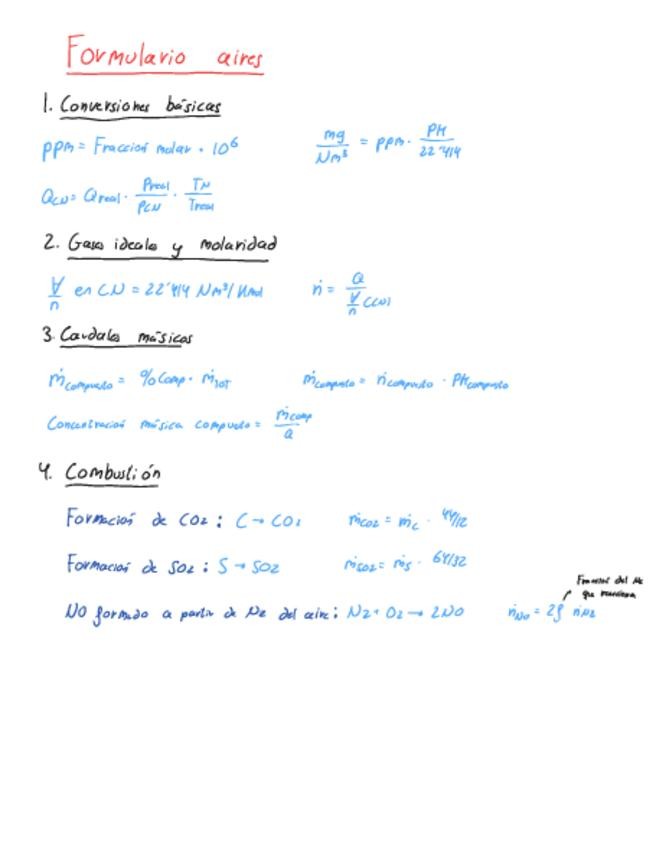 Formulario aires
1. Conversiones básicas
ppm = Fracción molar · 10⁶
mg/Nm³ = ppm · PM/22'414
QCN = Qreal · Preal/PCN · TN/Treal
2. Gases ideales y molaridad
V/n en CN = 22'414 Nm³/Kmol
ṅ = Q/(V/n (CN))
3. Caudales másicos
ṁcompuesto = %Comp · ṁTOT
ṁcompuesto = ṅcompuesto · PMcompuesto
Concentración másica compuesto = ṁcomp/Q
4. Combustión
Formación de CO2 : C → CO2
ṁCO2 = ṁC · 44/12
Formación de SO2 : S → SO2
ṁSO2 = ṁS · 64/32
Fracción del N2
que reacciona
NO formado a partir de N2 del aire : N2 + O2 → 2NO
ṅNO = 2f ṅN2